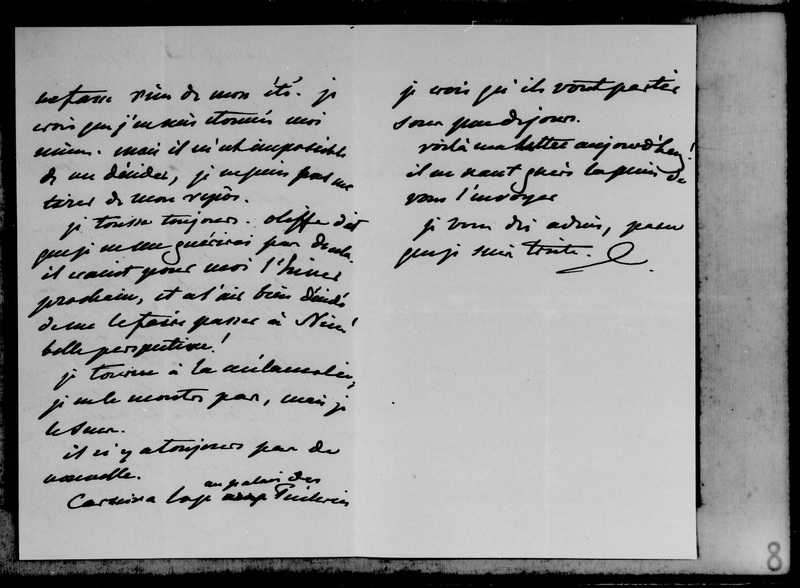 ne fasse rien de mon été. je
crois que j'en suis étonnés moi
même. mais il m'est impossible
de me décider, je ne puis pas me
tirer de mon repos.
je tousse toujours. oliffe dit
que je ne me guérirai pas de cela.
il craint pour moi l'hiver
prochain, et a l'air bien décidé
de me le faire passer à Nice!
belle perspective!
je tourne à la mélancolie,
je ne le montre pas, mais je
le sens.
il n'y a toujours pas de
nouvelle.
au palais des
Carmina loge Tuileries
je crois qu'ils vont partir
sous peu de jours.
voilà ma lettre aujourd'hui!
il ne vaut guère la peine de
vous l'envoyer
je vous dis adieu, parce
que je suis triste.
8